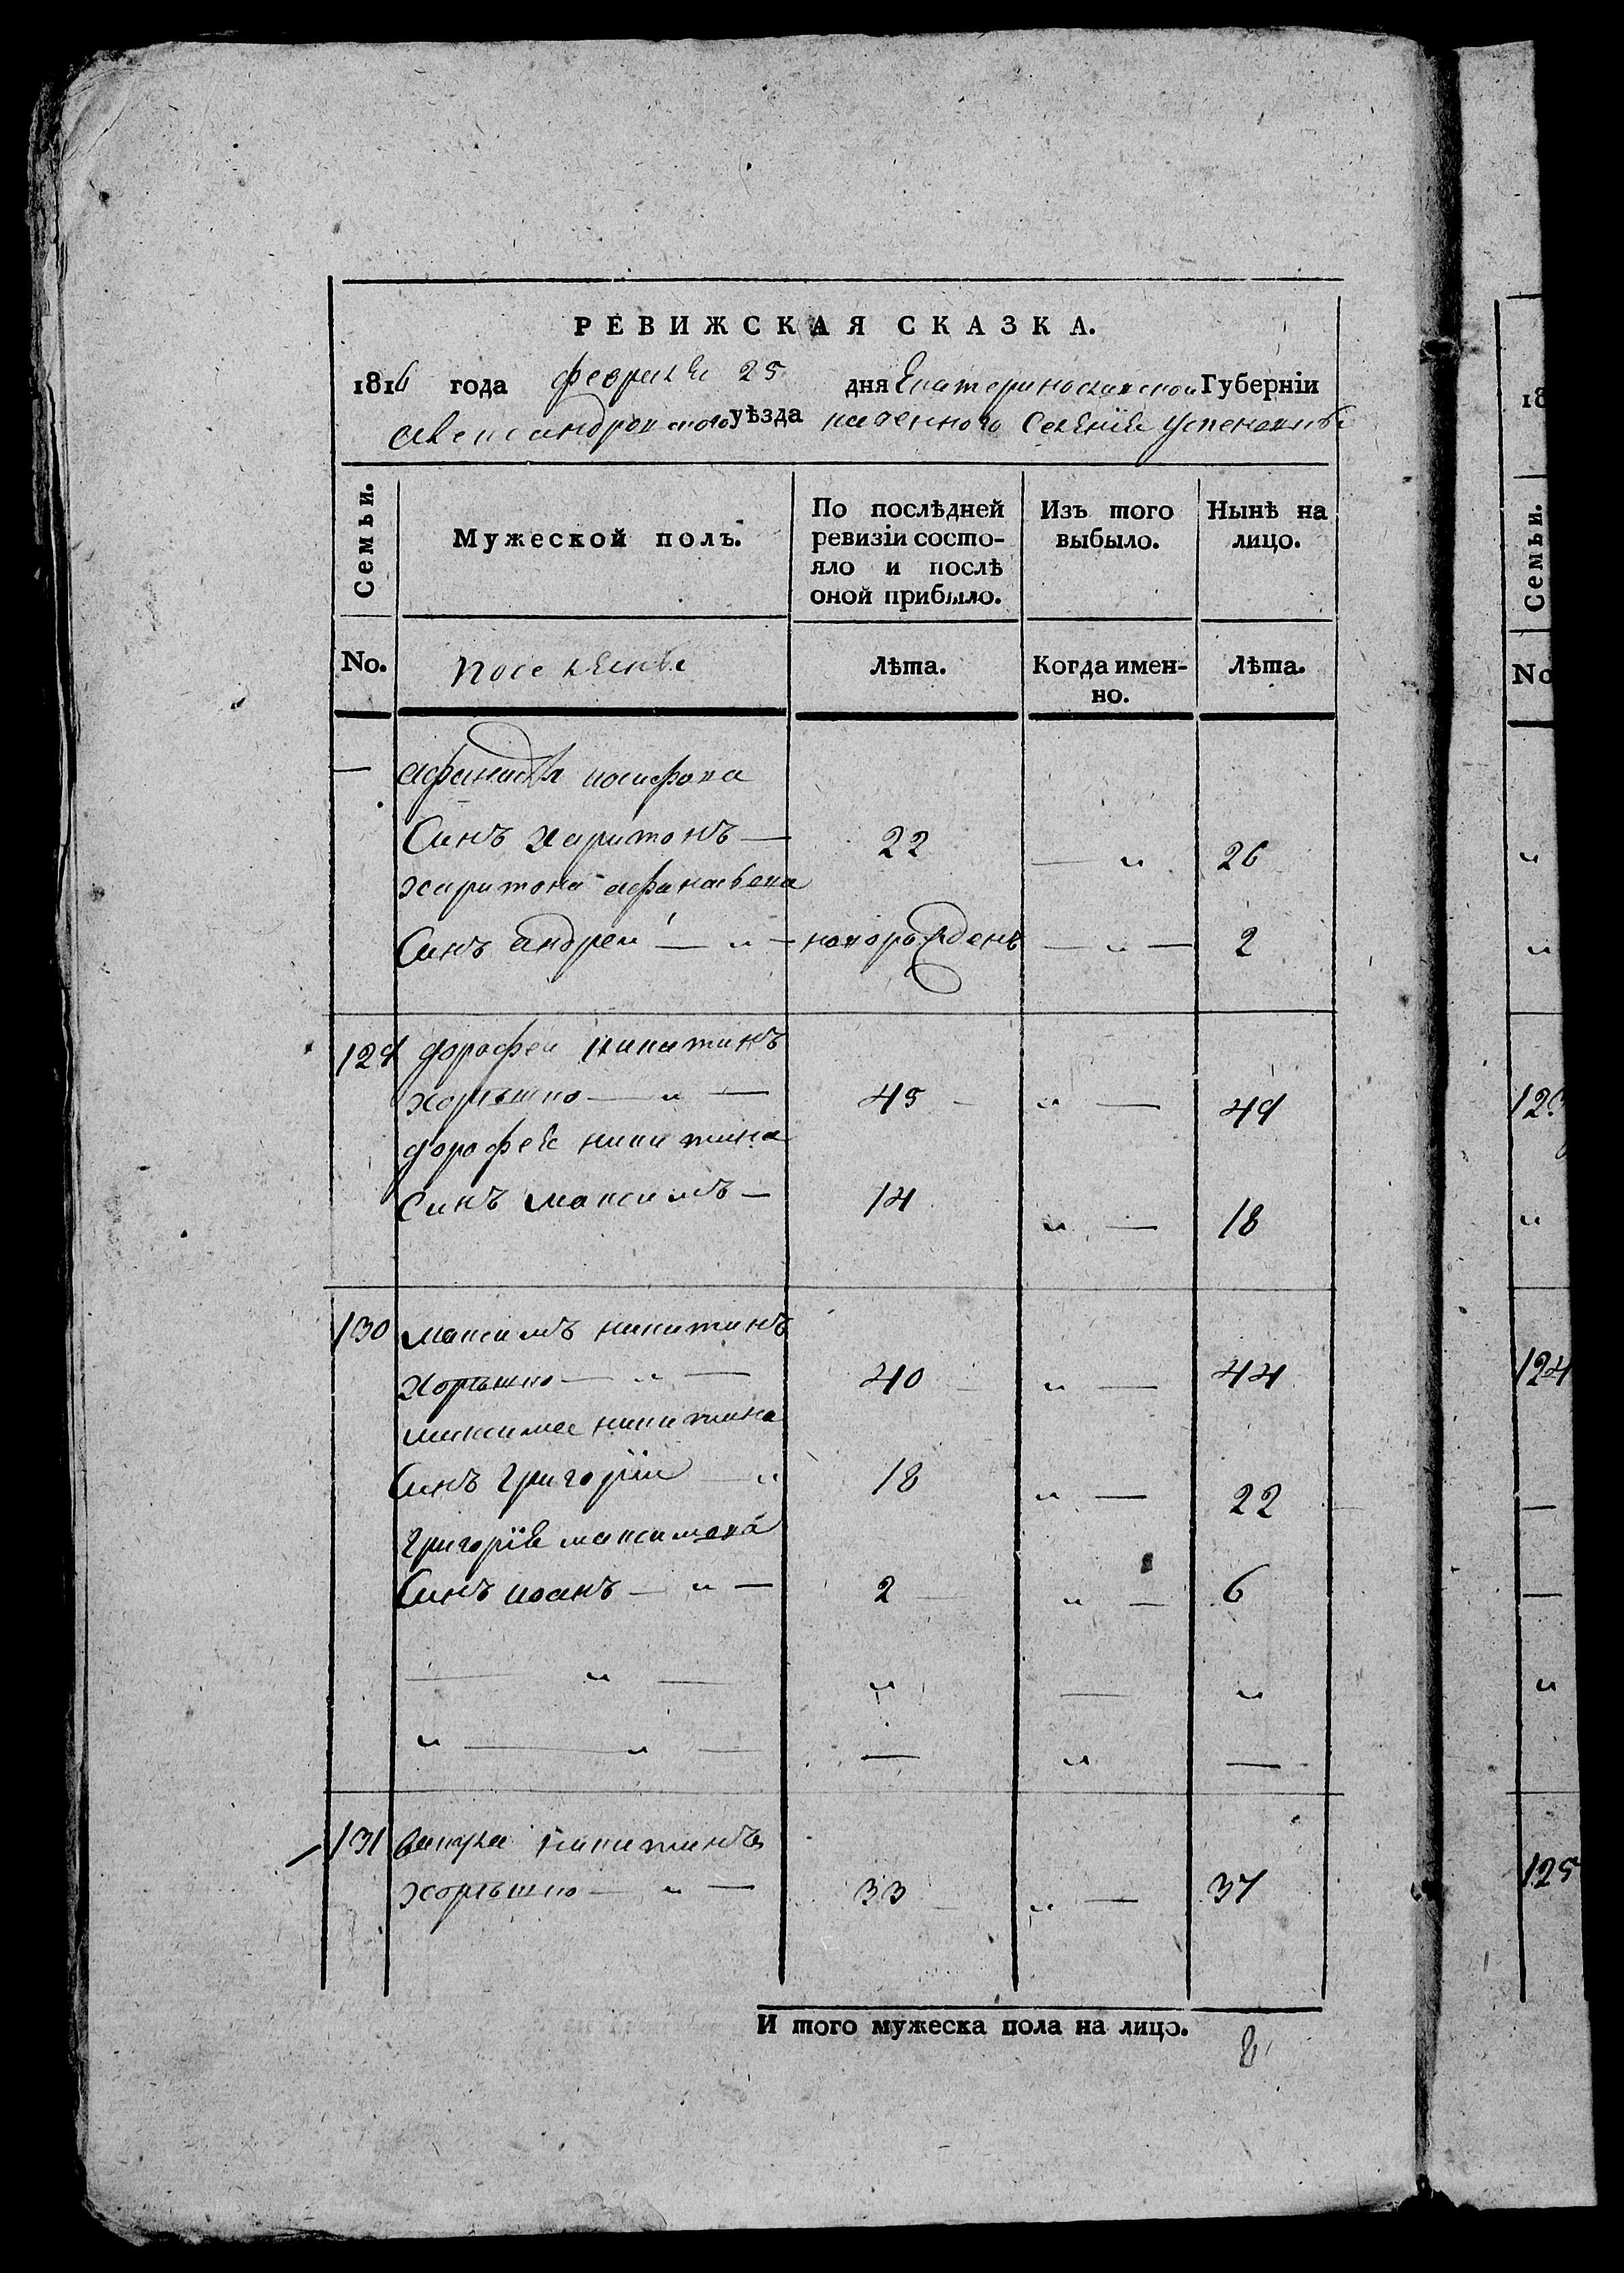 РЕВИЖСКАЯ СКАЗКА.
1816 года февраля 25 дня Екатеринославской Губерніи
александровского уѣзда казенного Селенія Успеновки
Семьи.
Мужеской полъ.
По послѣдней ревизіи состо-
яло и послѣ
оной прибыло.
Изъ того
выбыло.
Нынѣ на
лицо.
No.
поселяне
Лѣта.
Когда имен-
но.
Лѣта.
— афанасія иосифова
Синъ харитонъ — 22 — " 26
харитона афанасьева
Синъ андреи — " — новорожденъ — " — 2
129 дорофеи никитинъ
— " — 45 " — 49
дорофея никитина
Синъ максимъ — 14 " — 18
130 максимъ никитинъ
— " — 40 " — 44
максима никитина
Синъ григоріи — " 18 " — 22
григорія максимова
Синъ иоанъ — " — 2 " — 6
— " — " — "
" — " — — " —
131 вакула никитинъ
— " — 33 " — 37
И того мужеска пола на лицо. 8
18
Семьи.
No
124
125